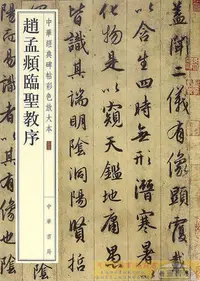 中華經典碑帖彩色放大本
趙孟頫臨聖教序
中華書局
蓋聞二儀有像顯
以含生四時無形潛寒暑
化物是以窺天鑑地庸愚
皆識其端明陰洞陽賢